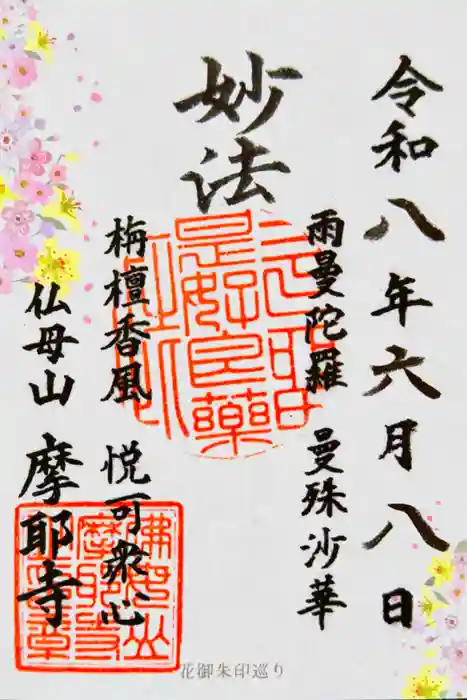 令和八年六月八日
妙法
雨曼陀羅 曼殊沙華
栴檀香風 悦可衆心
仏母山 摩耶寺
是好良薬
花御朱印巡り